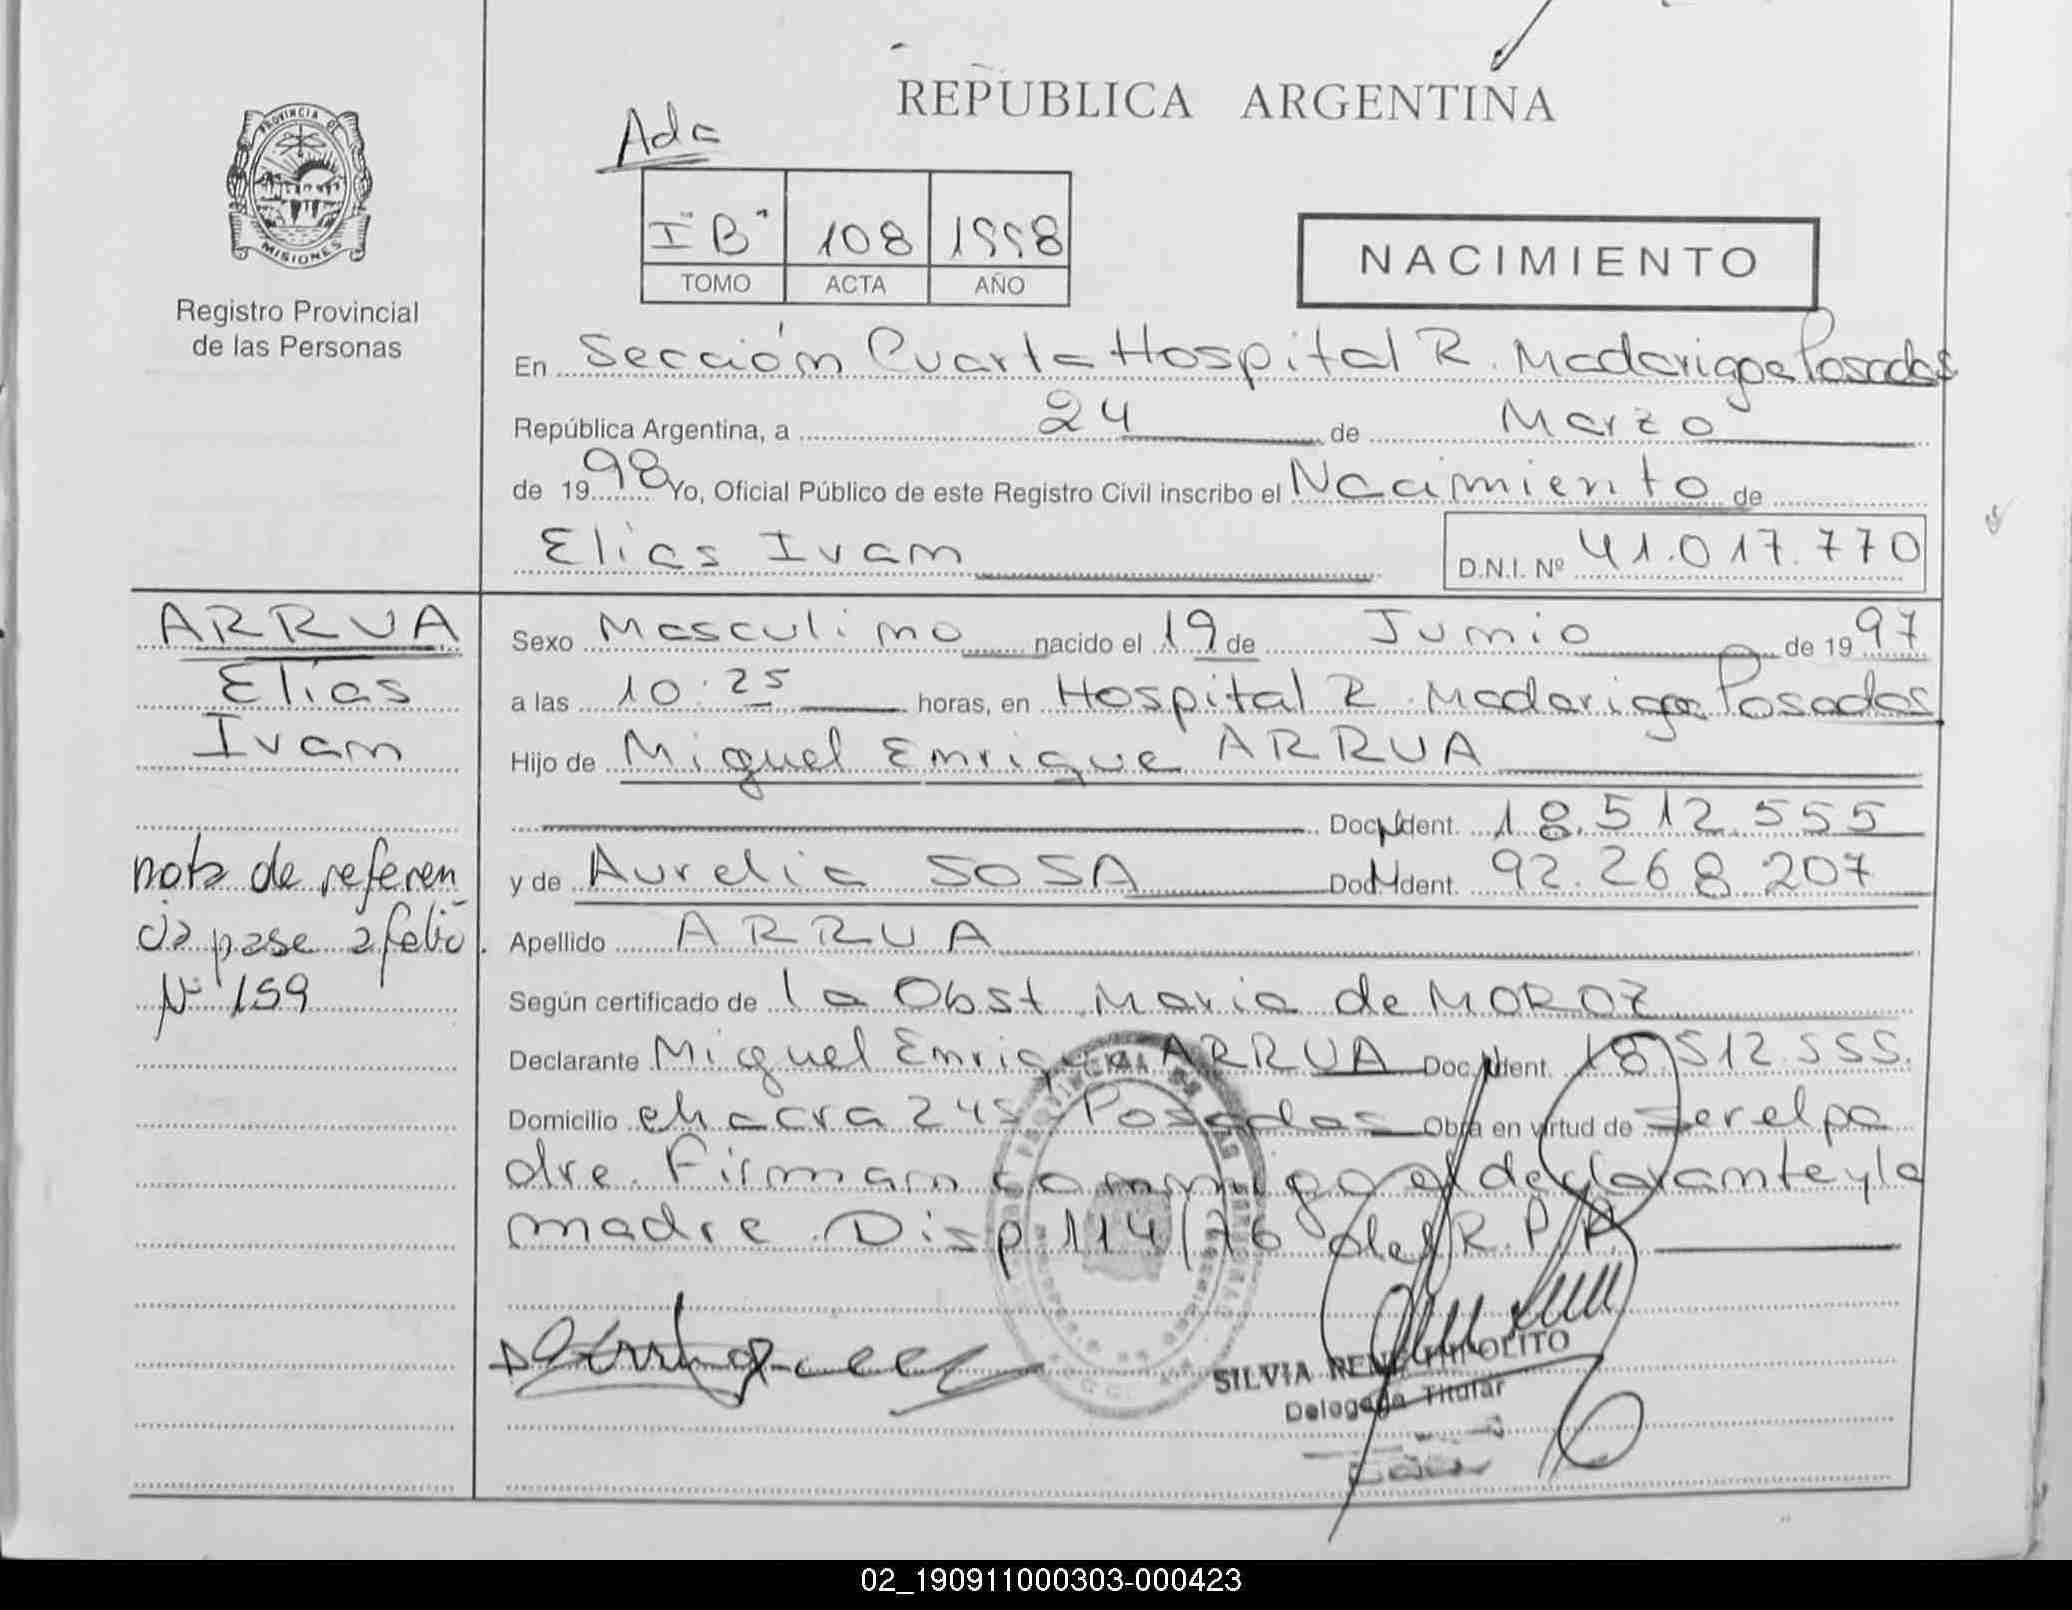 REPUBLICA ARGENTINA
Ada
PROVINCIA DE
MISIONES
I "B" 108 1998
TOMO ACTA AÑO
NACIMIENTO
Registro Provincial
de las Personas
En Sección Cuarta Hospital R. Madariaga Posadas
República Argentina, a 24 de Marzo
de 1998 Yo, Oficial Público de este Registro Civil inscribo el Nacimiento de
Elias Ivan D.N.I. Nº 41.017.770
ARRUA
Elias
Ivan
nota de referen
cia pase a folio
Nº 159
Sexo Masculino nacido el 19 de Junio de 1997
a las 10:25 horas, en Hospital R. Madariaga Posadas
Hijo de Miguel Enrique ARRUA
Doc. Ident. 18.512.555
y de Aurelia SOSA Doc. Ident. 92.268.207
Apellido ARRUA
Según certificado de la Obst. Maria de MOROZ
Declarante Miguel Enrique ARRUA Doc. Ident. 18.512.555.
Domicilio chacra 245 Posadas Obra en virtud de ser el pa
dre. Firman conmigo el declarante y la
madre. Disp 114/76 del R.P.P.
SILVIA RENE HIPOLITO
Delegada Titular
02_190911000303-000423